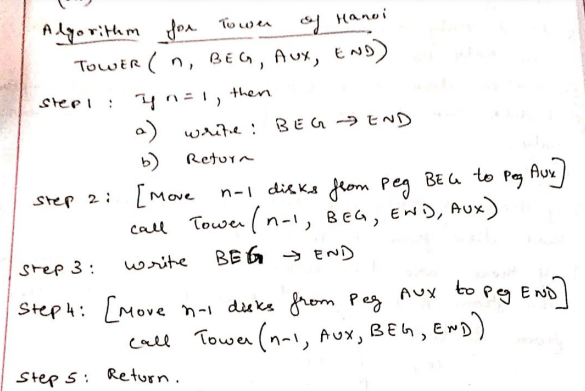 Algorithm for Tower of Hanoi
TOWER ( n, BEG, AUX, END)
Step 1 : If n = 1, then
a) write : BEG → END
b) Return
Step 2 : [Move n-1 disks from Peg BEG to Peg AUX]
call Tower (n-1, BEG, END, AUX)
Step 3 : write BEG → END
Step 4 : [Move n-1 disks from Peg AUX to Peg END]
call Tower (n-1, AUX, BEG, END)
Step 5 : Return.